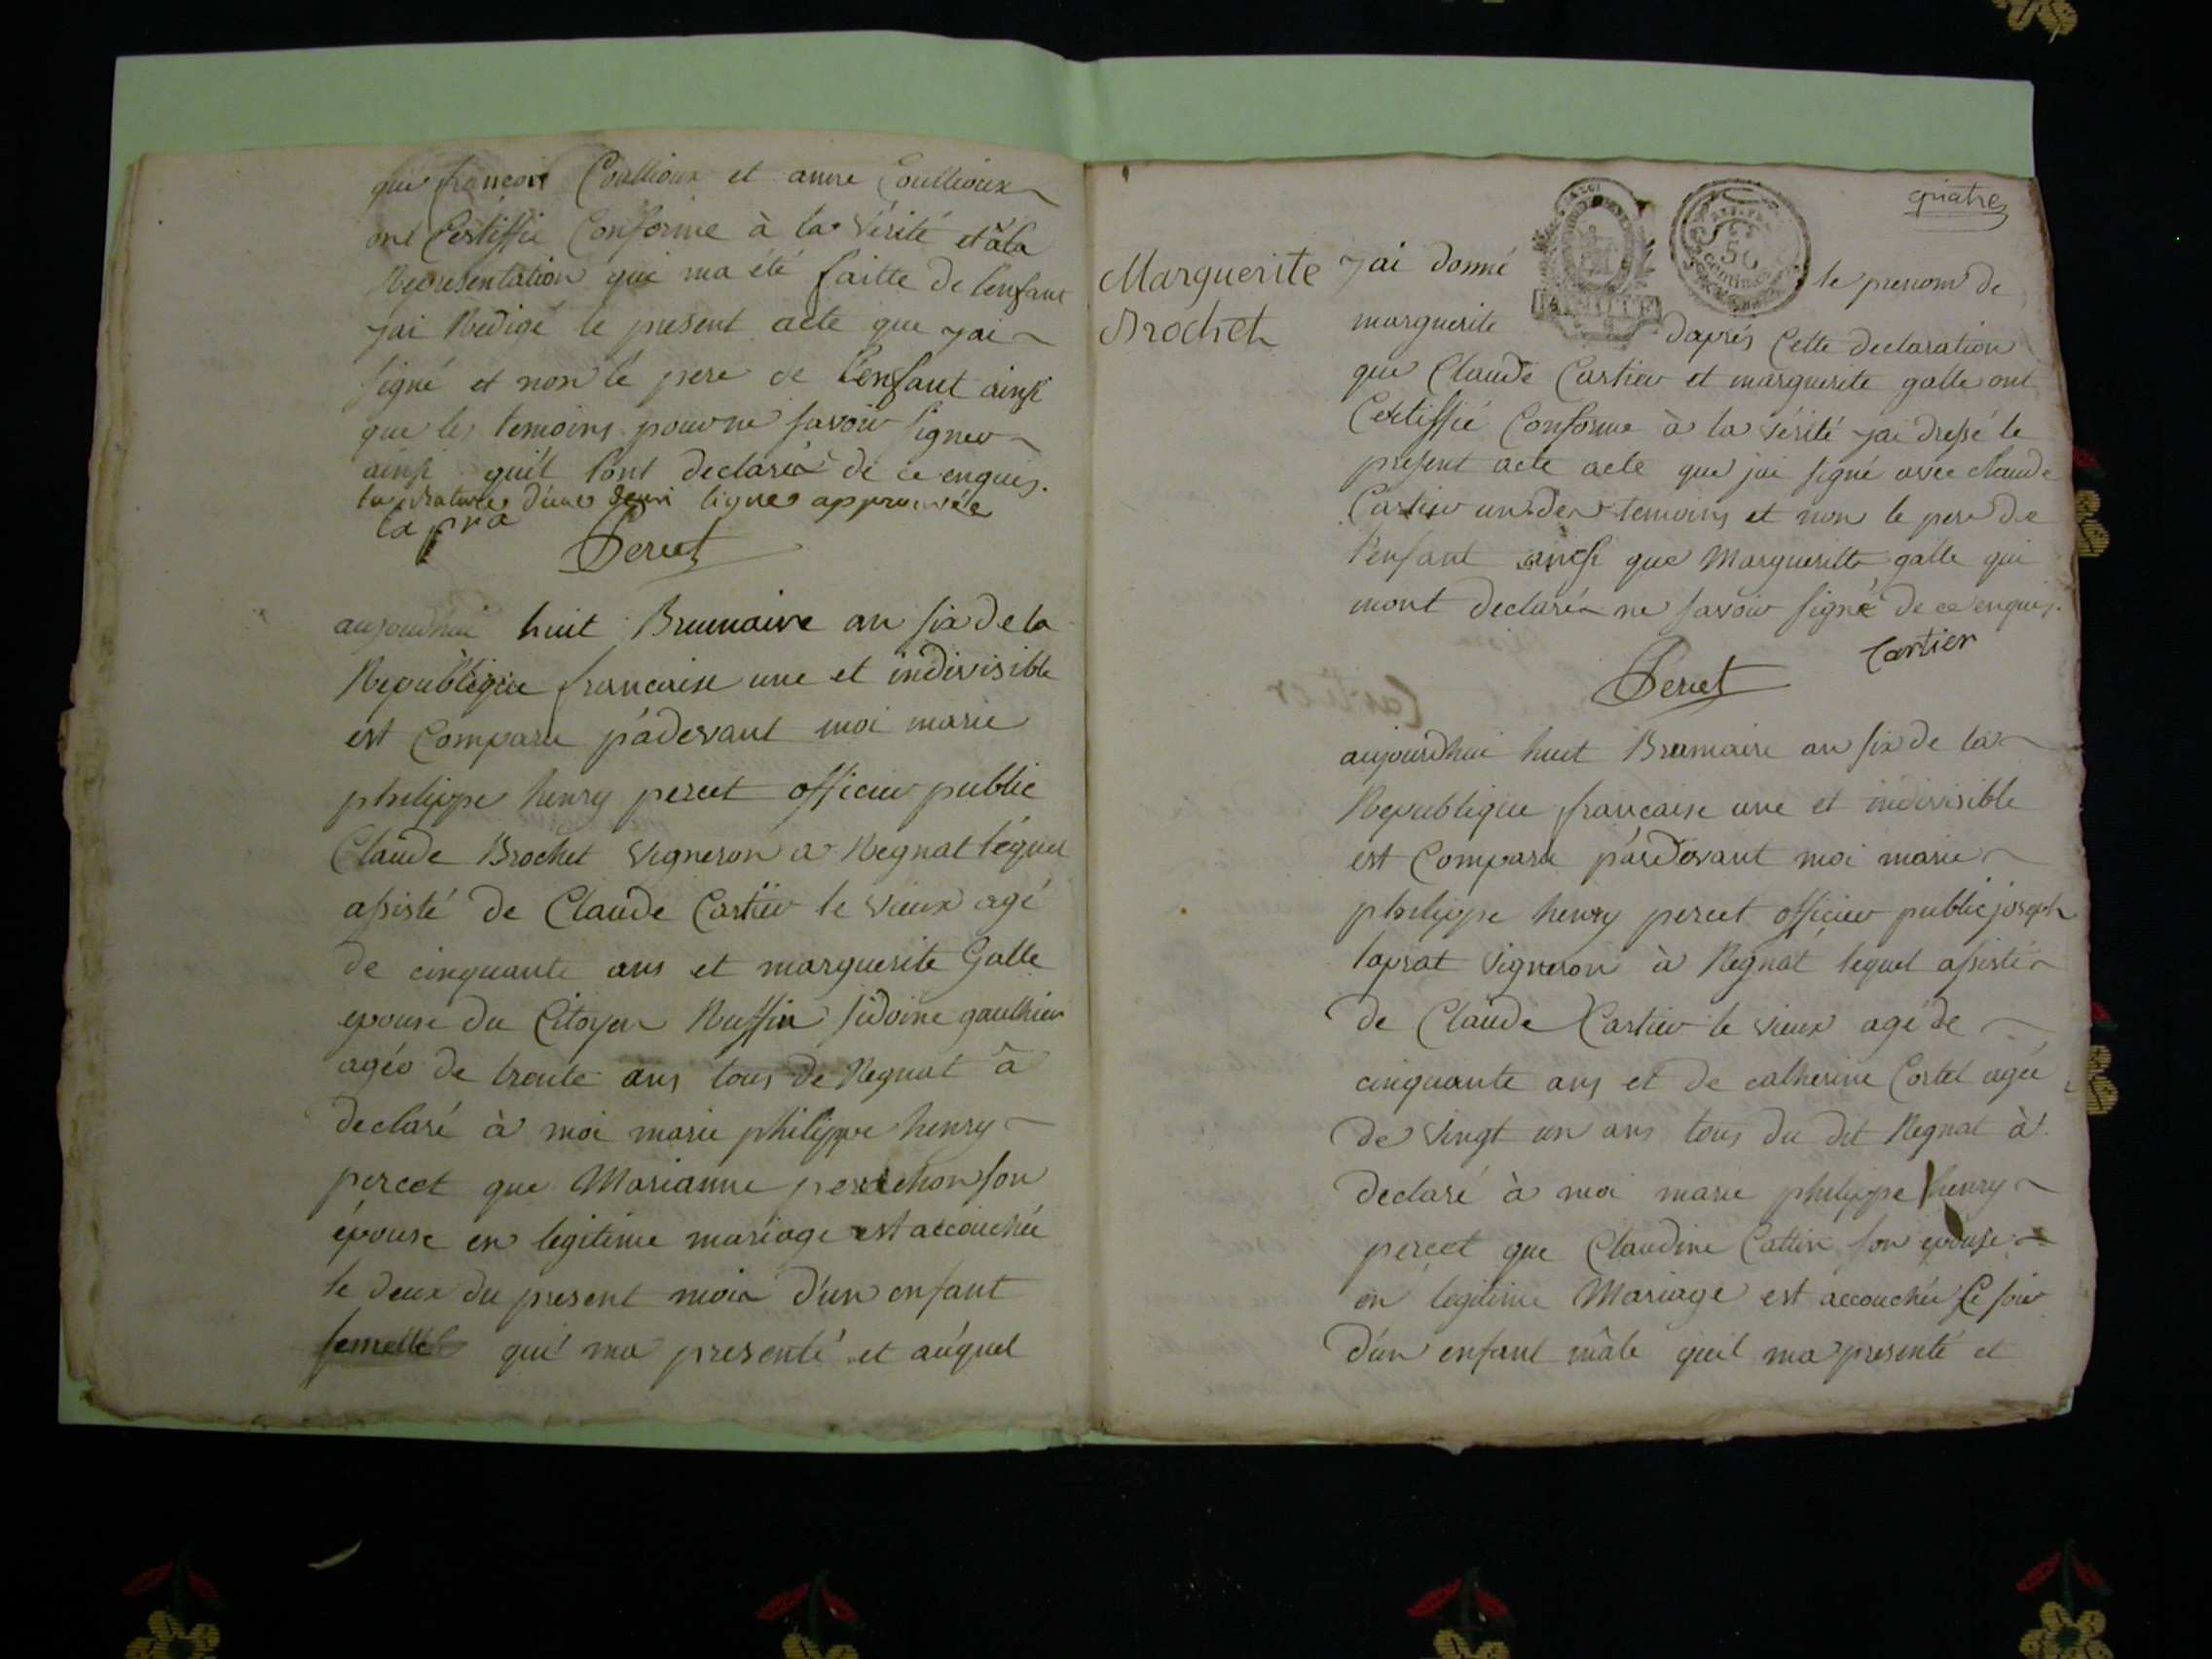 que françois Coullioux et anne Coullioux
ont Certiffie Conforme à la Vérité et àla
Representation qui ma été faitte de lenfant
jai Redigé le present acte que jai
signé et non le pere de l'enfant ainsi
que les temoins pour ne savoir signer
ainsi quil lont declaréa de ce enquis.
la rature d'une demi ligne approuvée
la pra
Percet
aujourdhui huit Brumaire an six de la
Republique francaise une et indivisible
est Comparu pàdevant moi marie
philippe henry percet officier public
Claude Brochet vigneron a Regnat léquel
assisté de Claude Cartier le vieux agé
de cinquante ans et marguerite Galle
epouse du Citoyen Ruffin sidoine gaulhier
agéo de trente ans tous de Regnat à
declaré à moi marie philippe henry
percet que Marianne perrachon son
épouse en legitime mariage est accouchée
le deux du present mois d'un enfant
femelle qui ma presenté et auquel
quatre
Marguerite
Brochet
jai donné le prenom de
marguerite daprés Cette declaration
que Claude Cartier et marguerite galle ont
Certiffié Conforme à la vérité jai dressé le
present acte acte que jai signé avec claude
Cartier un des temoins et non le pere de
l'enfant ainsi que Margueritte galle qui
mont declaréa ne savoir signé de ce enquis.
Percet Cartier
aujourdhui huit Brumaire an six de la
Republique francaise une et indivisible
est Comparu pardevant moi marie
philippe henry percet officier public joseph
laprat vigneron à Regnat lequel assisté
de Claude Cartier le vieux agé de
cinquante ans et de catherine Cortel agée
de vingt un ans tous du dit Regnat à
declaré à moi marie philippe henry
percet que Claudine Cattin son epouse
en legitime Mariage est accouchée Ce soir
d'un enfant mâle quil ma presenté et